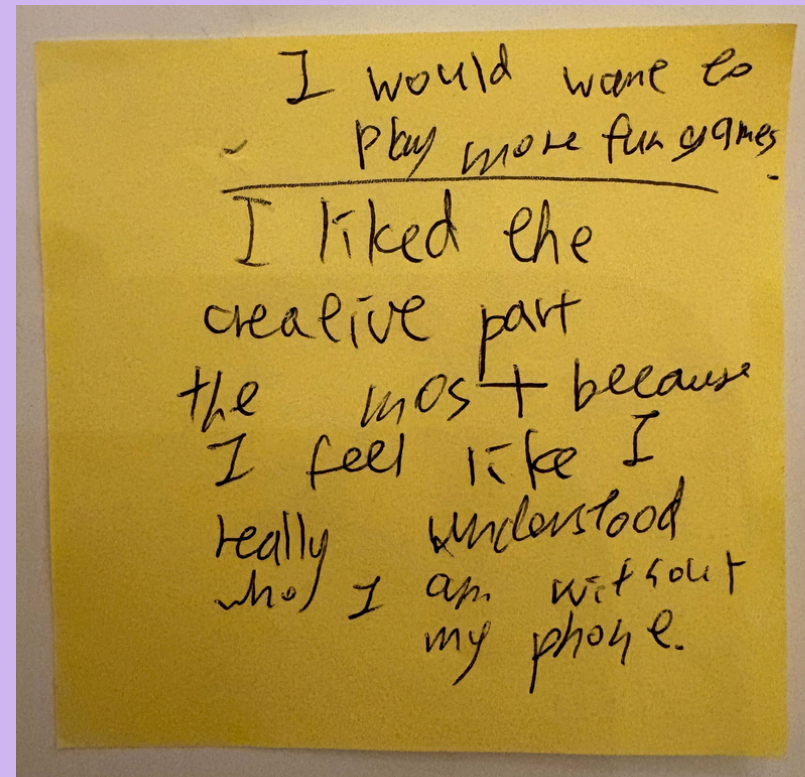 I would want to
play more fun games.
I liked the
creative part
the most because
I feel like I
really understood
who I am without
my phone.